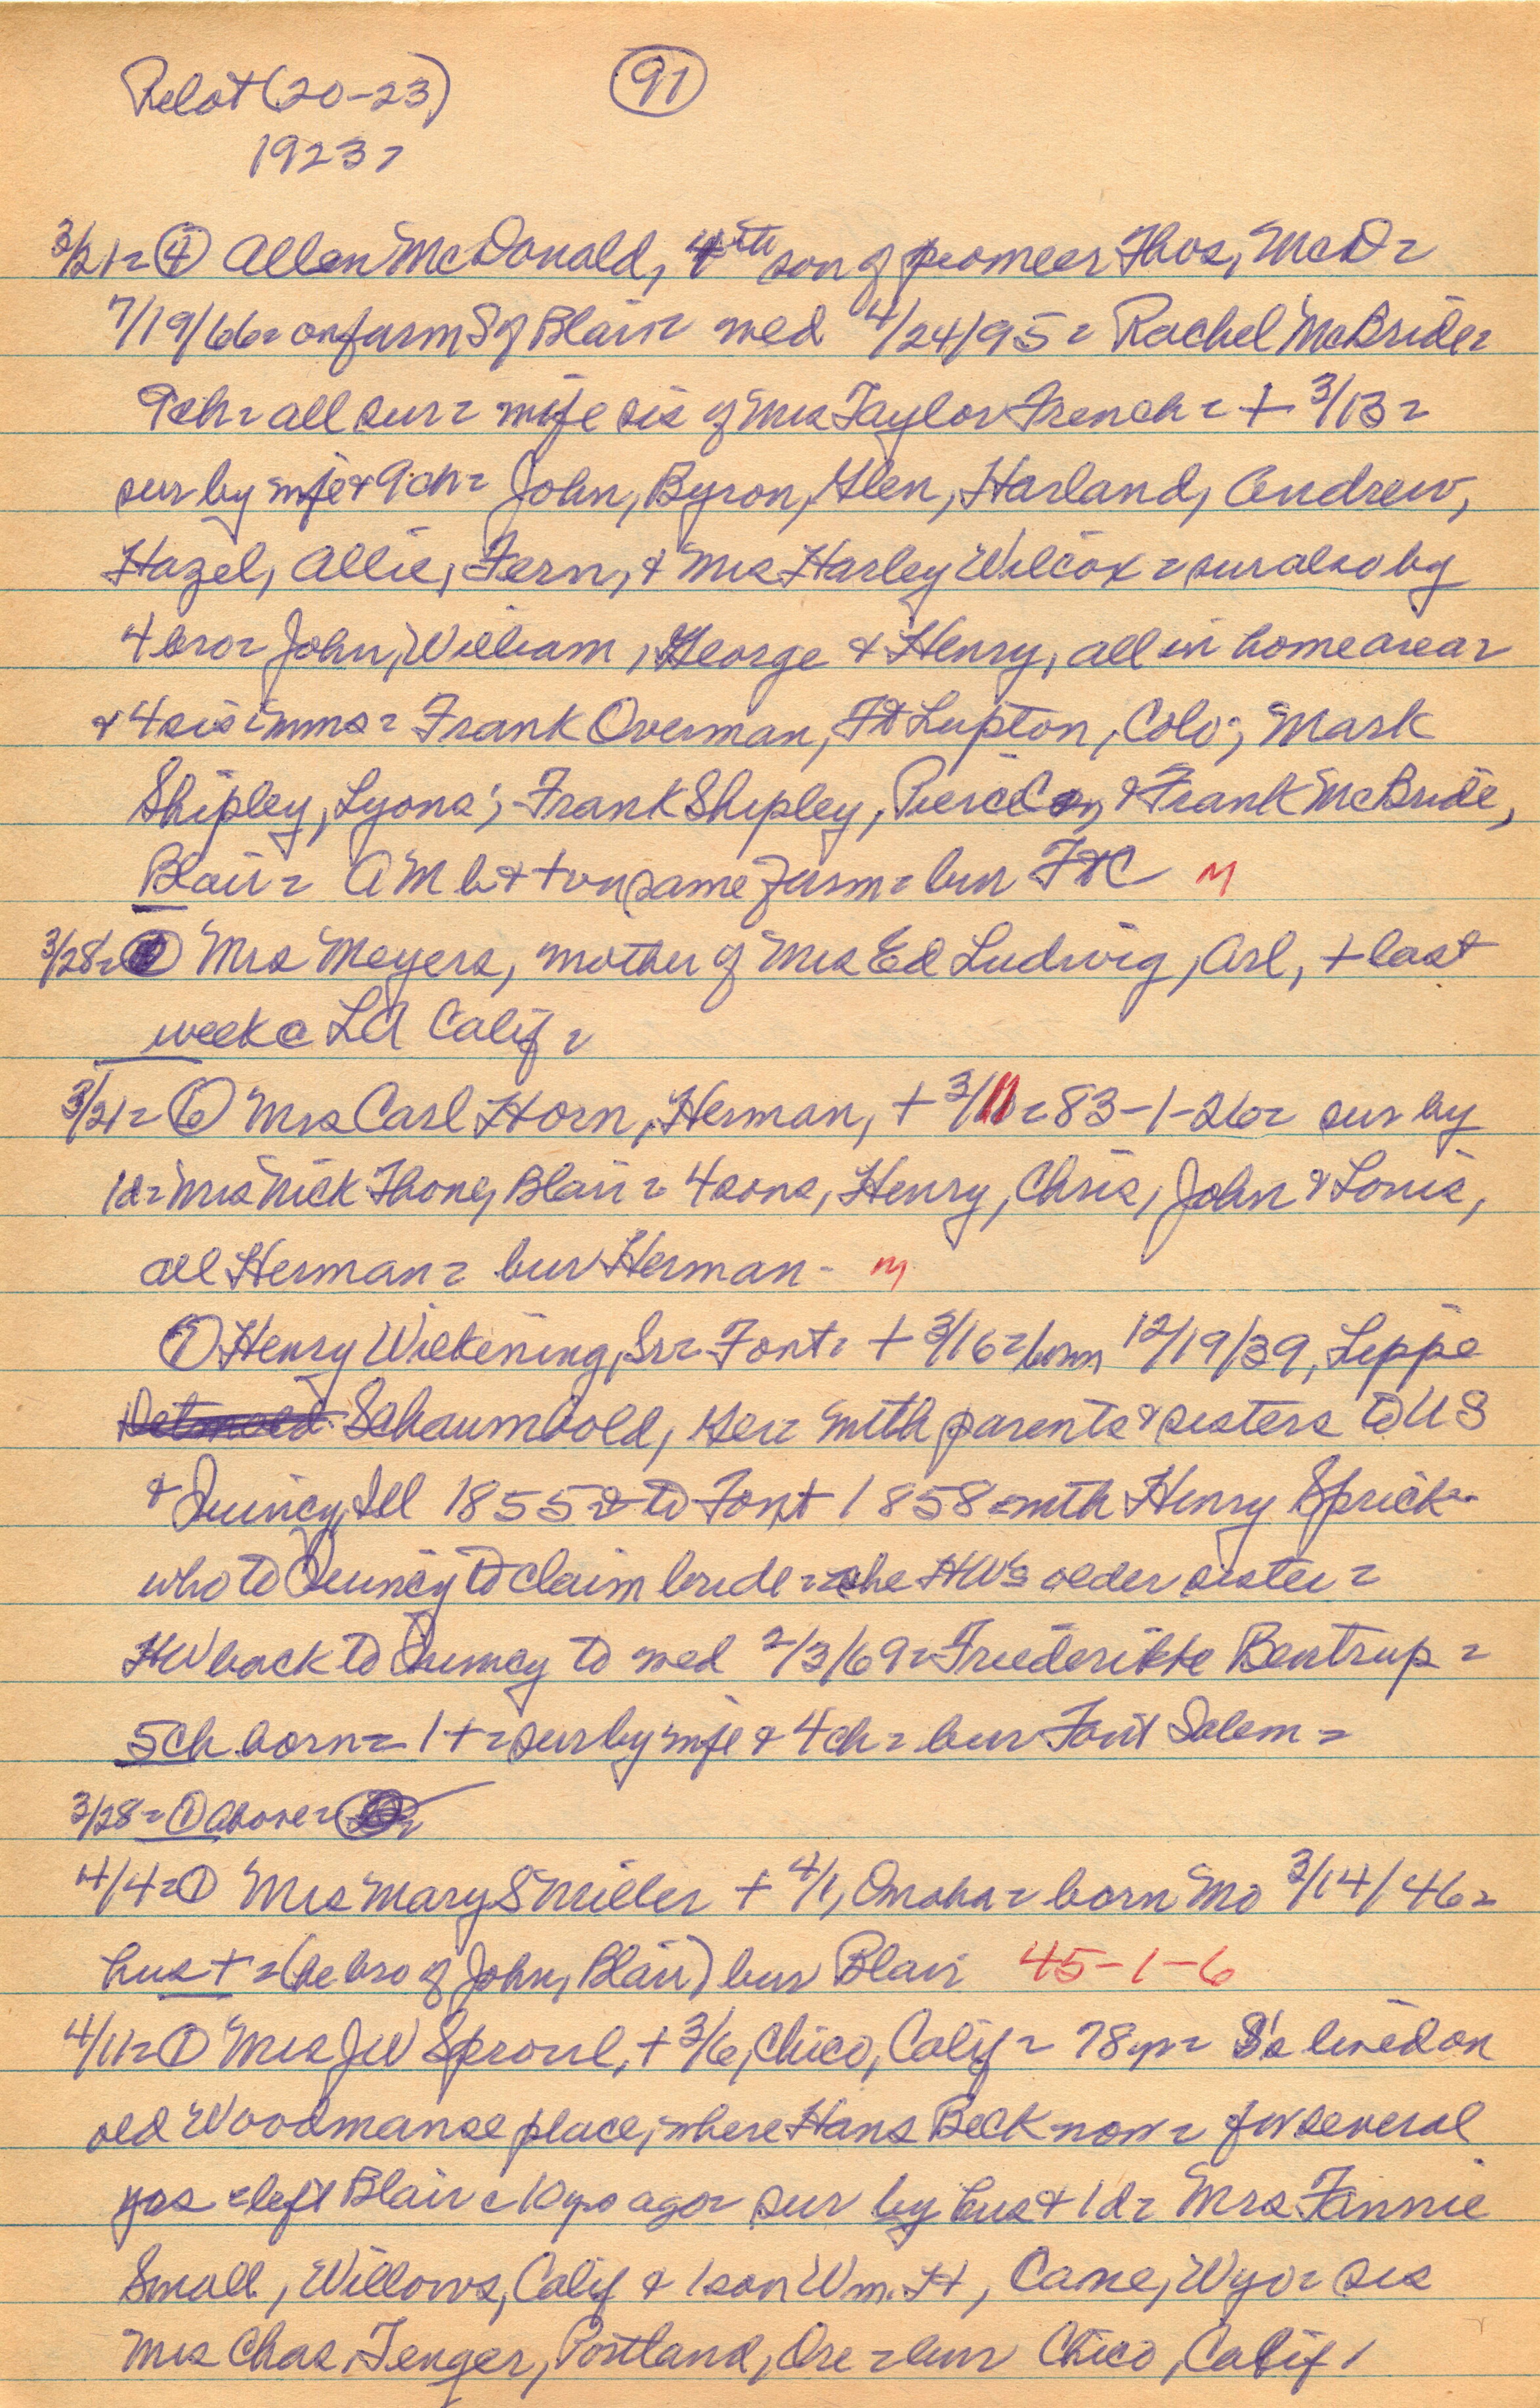 Pilot (20-23)
91
1923=
3/21= ④ Allen McDonald, 4th son of pioneer Thos, McD=
7/19/66= on farm S of Blair= med 4/24/95= Rachel McBride=
9ch= all sur= wife sis of Mrs Taylor French= + 3/13=
sur by wife & 9 ch= John, Byron, Glen, Harland, Andrew,
Hazel, Allie, Fern, & Mrs Harley Wilcox= sur also by
4 bro= John, William, George & Henry, all in home area=
& 4 sis = Frank Overman, Ft Lupton, Colo; Mark
Shipley, Lyons; Frank Shipley, Pierce Co, & Frank McBride,
Blair= AM b & + on same farm= bur FtC M
3/28= Mrs Meyers, mother of Mrs Ed Ludwig, Arl, + last
week @ LA Calif=
3/21= ⑥ Mrs Carl Horn, Herman, + 3/11= 83-1-26= sur by
1d= Mrs Nick Thone, Blair= 4 sons, Henry, Chris, John & Louis,
all Herman= bur Herman- M
⑦ Henry Wilkening, Sr= Font= + 3/16= born 12/19/39, Lippe
Detmold Schaumbold, Ger= with parents & sisters to US
& Quincy, Ill 1855= & to Font 1858= with Henry Sprick-
who to Quincy to claim bride= she HW's older sister=
HW back to Quincy to med 2/3/69= Friederikke Bentrup=
5ch born= 1+= sur by wife & 4 ch= bur Font Salem=
3/28= ① above=
4/4= ① Mrs Mary S Miller + 4/1, Omaha= born Mo 3/14/46=
hus += (he bro of John, Blair) bur Blair 45-1-6
4/11= ① Mrs JW Sproul, + 3/6, Chico, Calif= 78 yr= S's lived on
old Woodmanse place, where Hans Beck now= for several
yrs = left Blair c 10 yrs ago= sur by hus & 1d= Mrs Fannie
Small, Willows, Calif & 1 son Wm. H, Cane, Wyo= sis
Mrs Chas Fenger, Portland, Ore= bur Chico, Calif,